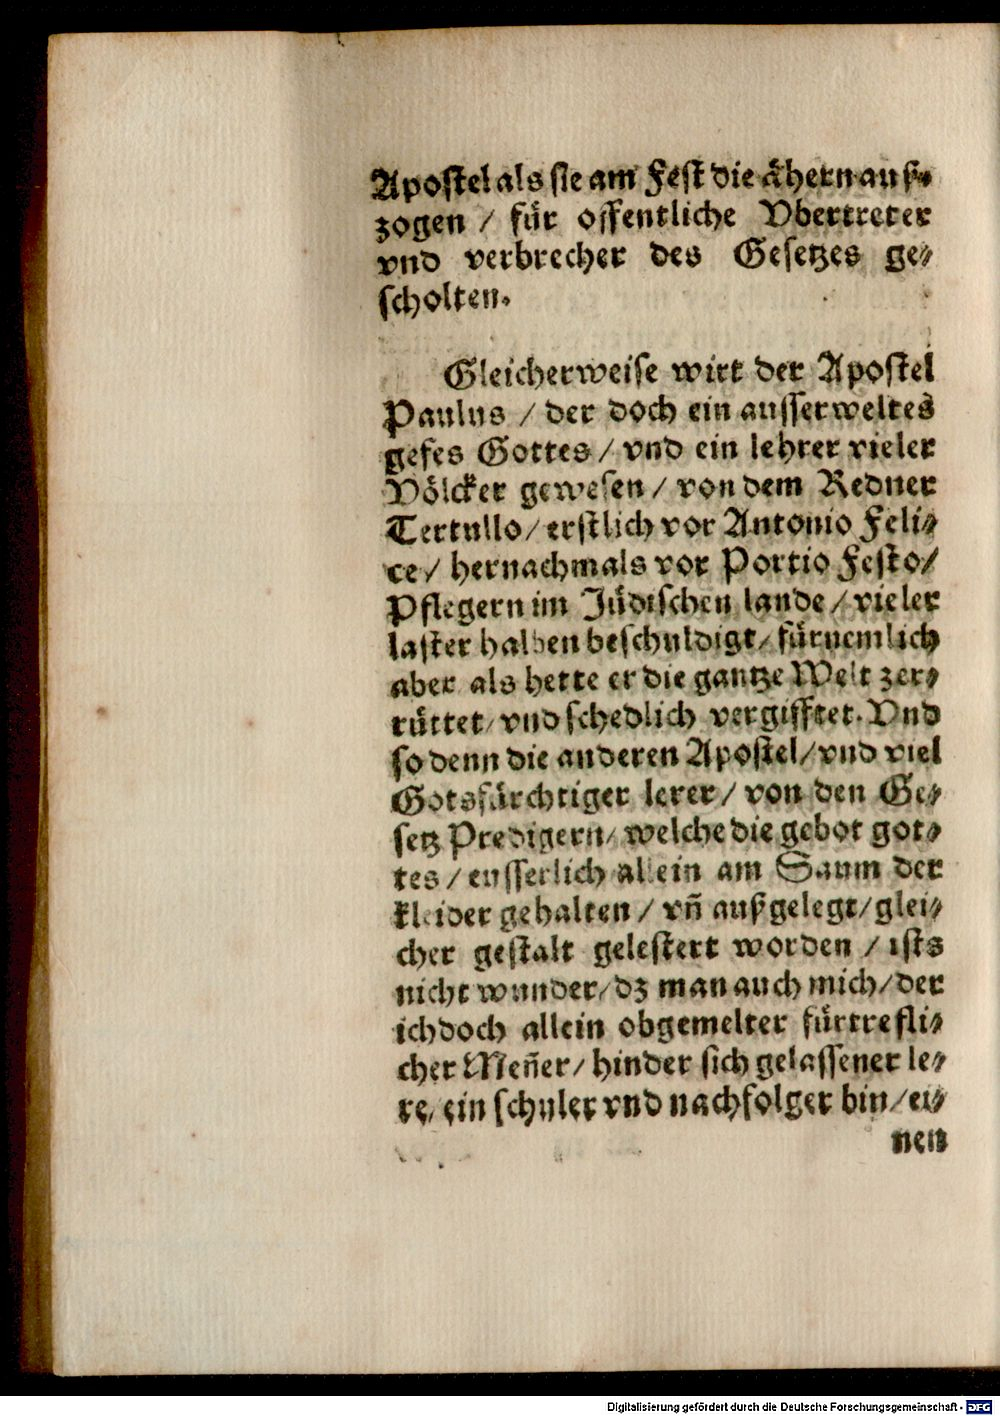 Apostel als sie am Fest die ähern auß⸗
zogen / für offentliche Vbertreter
vnd verbrecher des Gesetzes ge⸗
scholten.
Gleicherweise wirt der Apostel
Paulus / der doch ein ausserweltes
gefes Gottes / vnd ein lehrer vieler
Völcker gewesen / von dem Redner
Tertullo / erstlich vor Antonio Feli⸗
ce / hernachmals vor Portio Festo /
Pflegern im Jüdischen lande / vieler
laster halben beschuldigt / fürnemlich
aber als hette er die gantze Welt zer⸗
rüttet / vnd schedlich vergifftet. Vnd
so denn die anderen Apostel / vnd viel
Gotsfürchtiger lerer / von den Ge⸗
setz Predigern / welche die gebot got⸗
tes / eusserlich allein am Saum der
kleider gehalten / vñ außgelegt / glei⸗
cher gestalt gelestert worden / ists
nicht wunder / dz man auch mich / der
ich doch allein obgemelter fürtrefli⸗
cher Meñer / hinder sich gelassener le⸗
re / ein schuler vnd nachfolger bin / ei⸗
nen
Digitalisierung gefördert durch die Deutsche Forschungsgemeinschaft - DFG